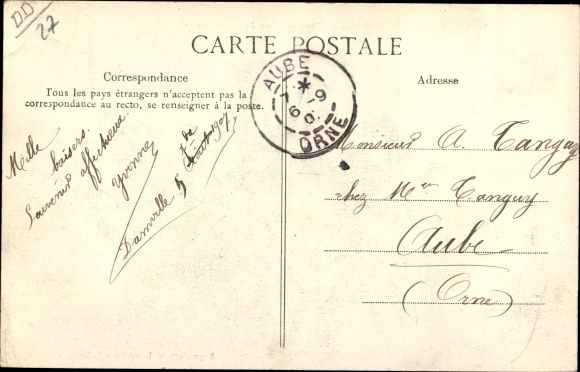 DD
27
CARTE POSTALE
Correspondance
Tous les pays étrangers n'acceptent pas la
correspondance au recto, se renseigner à la poste.
Adresse
AUBE
7-9
ORNE
Mille baisers.
Souvenir affectueux.
Yvonne
Damville 5
Monsieur A. Tanguy
chez Mr Tanguy
Aube
(Orne)